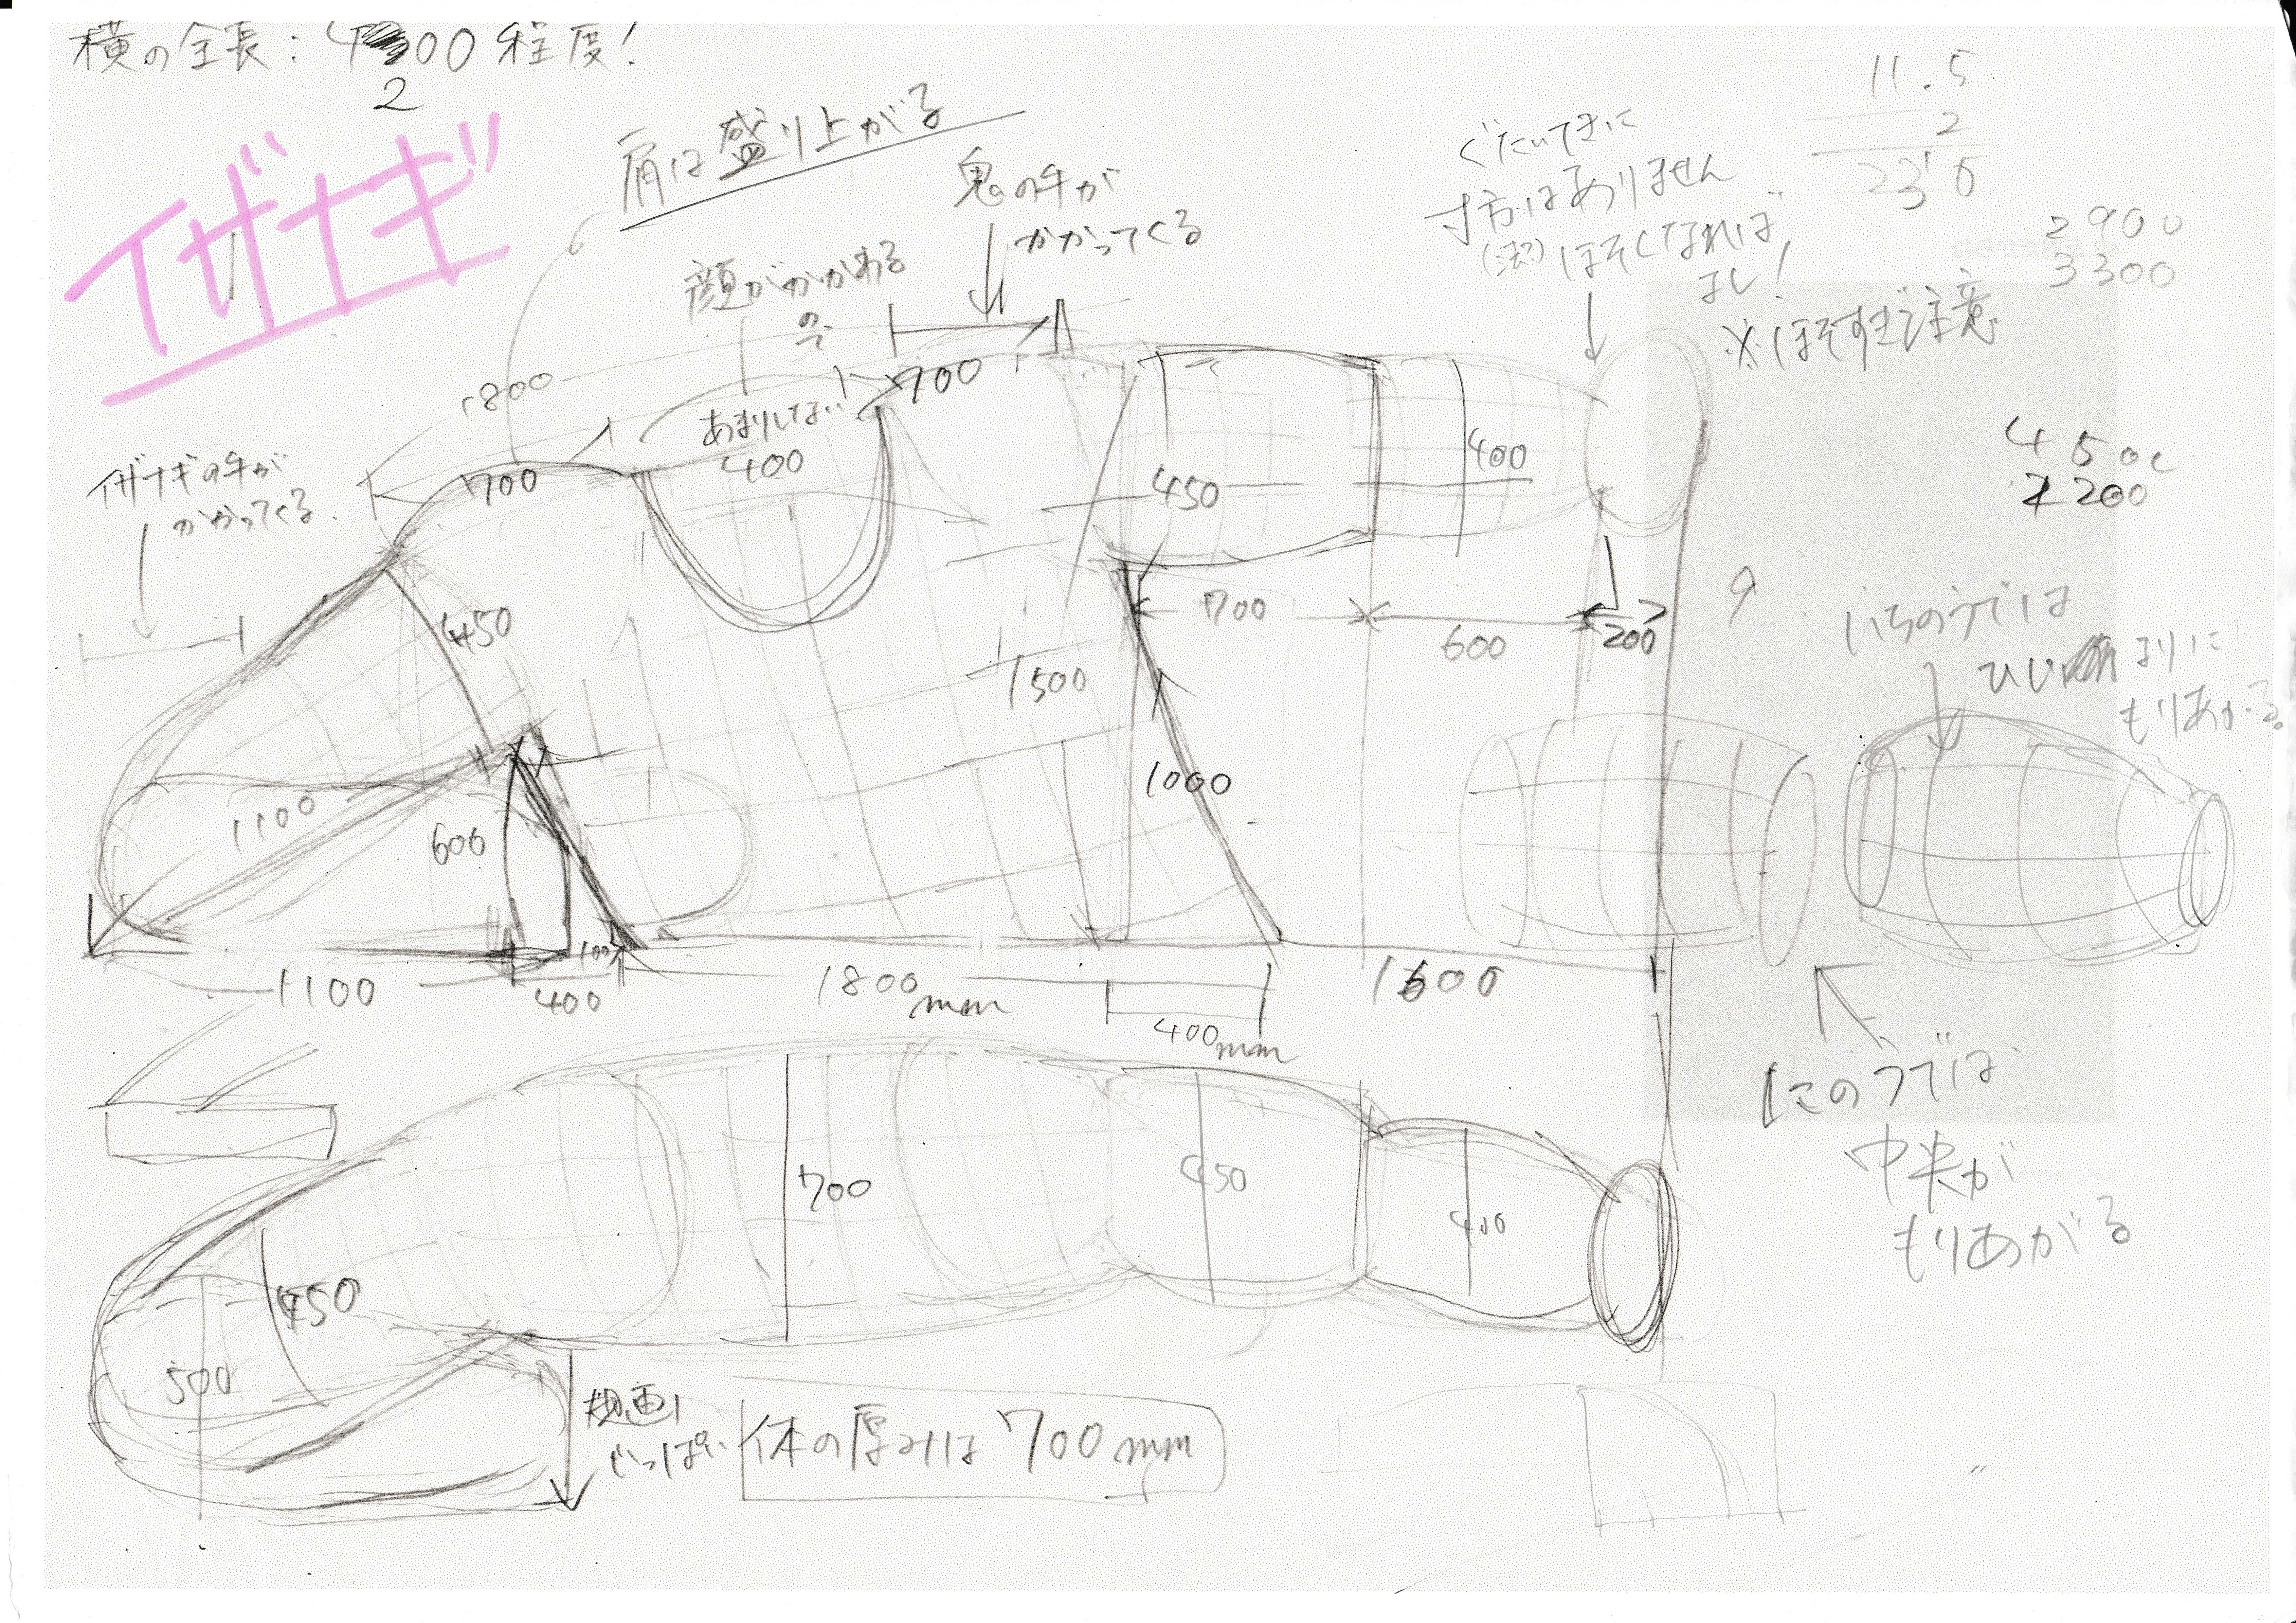 横の全長:4200程度!
イザナギ
肩は盛り上がる
鬼の手が
かかってくる
顔がかかわる
ので
あまりしない!
ぐたいてきに
寸方はありません
ほそくなれば
よし!
※ほそすぎ注意
11.5
2
23
2900
3300
4500
200
イザナギの手が
かかってくる
1800
700
400
700
450
400
450
700
600
200
1500
1000
1100
600
100
1100
400
1800mm
400mm
1600
9
いちのうでは
ひじ
まりに
もりあがる。
にのうでは
中央が
もりあがる
700
450
400
450
500
いっぱい
体の厚みは700mm